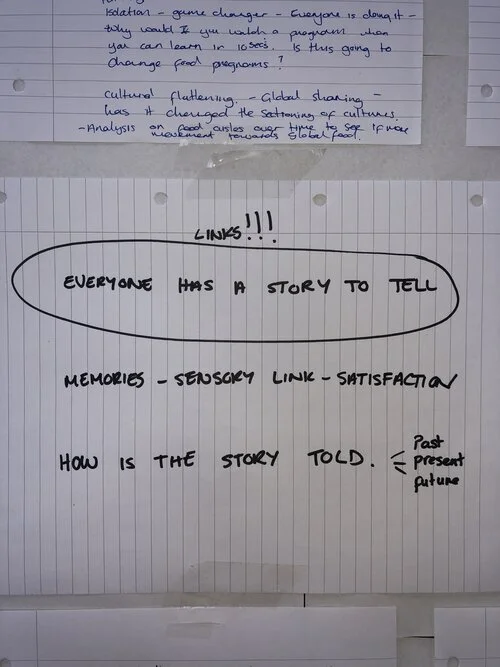 Isolation - game changer - Everyone is doing it -
Why would If you watch a program when
you can learn in 10secs. Is this going to
change food programs?
Cultural flattening. - Global sharing -
has it changed the of cultures.
- Analysis on food aisles over time to see if more
movement towards Global food.
LINKS!!!
EVERYONE HAS A STORY TO TELL
MEMORIES - SENSORY LINK - SATISFACTION
HOW IS THE STORY TOLD.
Past
present
future